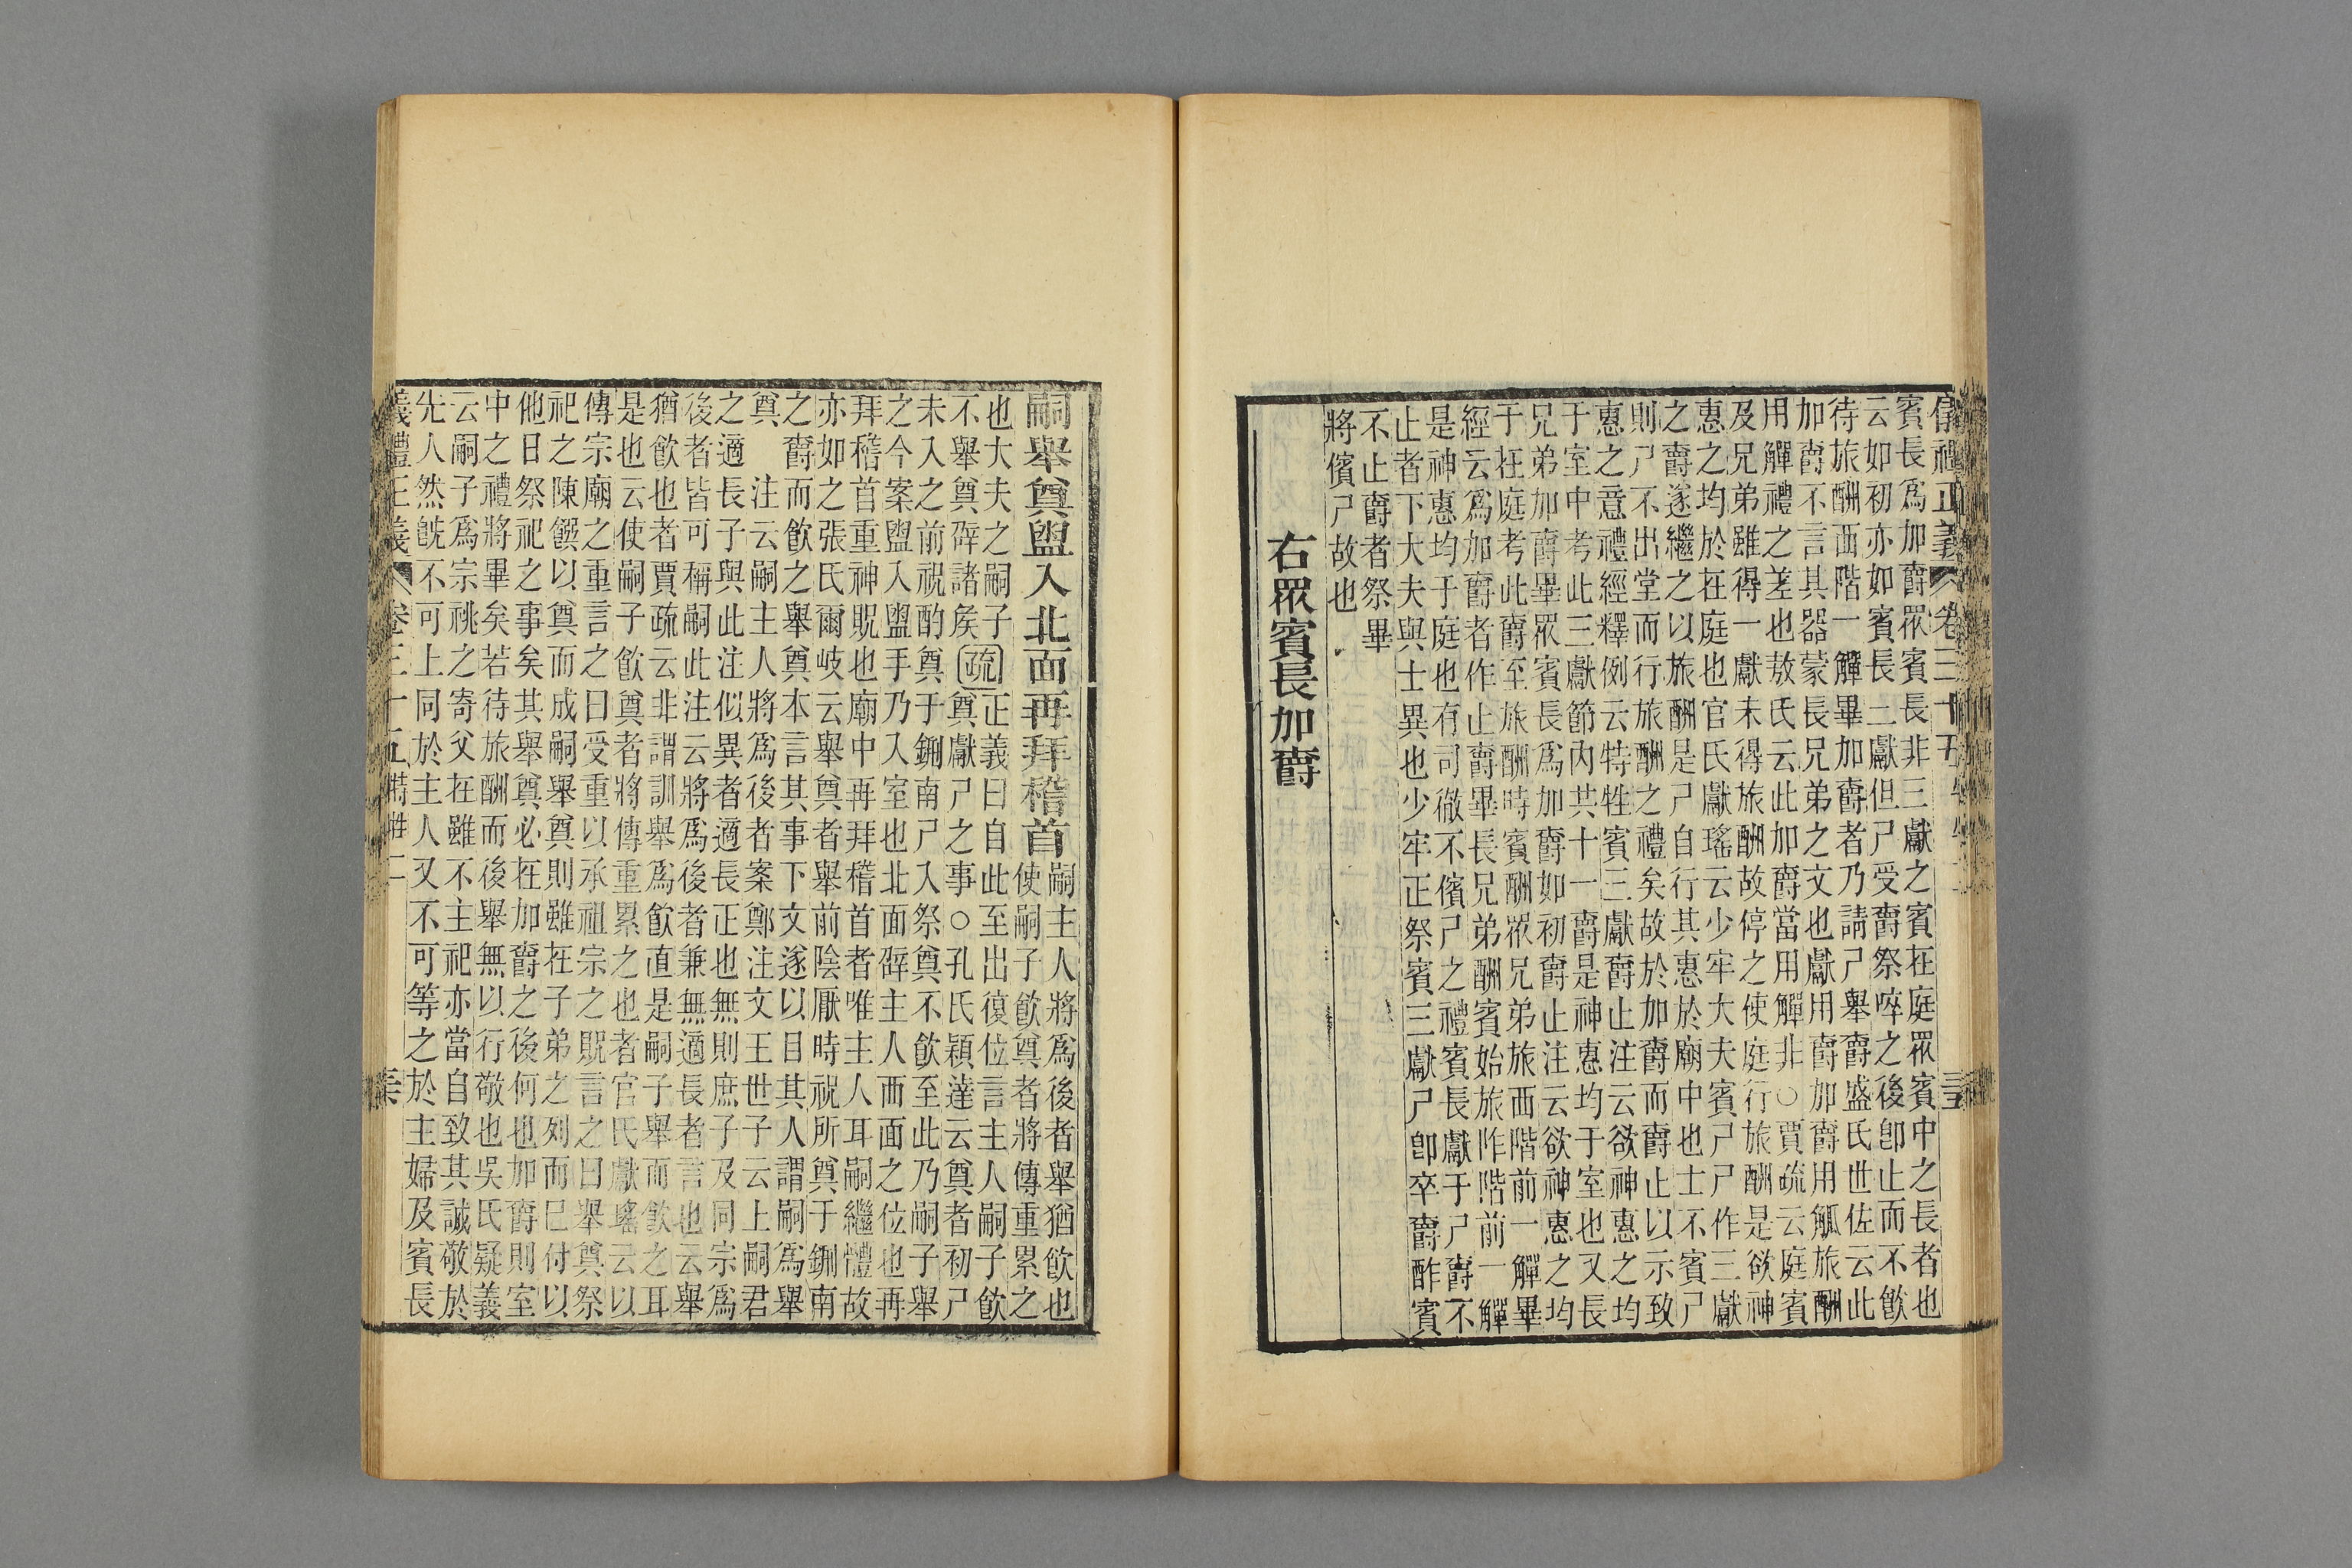 儀禮正義 卷三十五
賓長爲加爵眾賓長非三獻之賓在庭眾賓中之長者也
云如初亦如賓長二獻但尸受爵祭啐之後卽止而不飮
待旅酬西階一觶畢加爵者乃請尸舉爵盛氏世佐云此
加爵不言其器蒙長兄弟之文也獻用爵加爵用觚旅酬
用觶禮之差也敖氏云此加爵當用觶非○賈疏云庭賓
及兄弟雖得一獻未得旅酬故停之使庭行旅酬是欲神
惠之均於在庭也官氏獻瑤云少牢大夫賓尸尸作三獻
之爵遂繼之以旅酬是尸自行其惠於廟中也士不賓尸
則尸不出堂而行旅酬之禮矣故於加爵而爵止以示致
惠之意禮經釋例云特牲賓三獻爵止注云欲神惠之均
于室中考此三獻節內其十一爵是神惠均于室也又長
兄弟加爵畢眾賓長爲加爵如初爵止注云欲神惠之均
于在庭考此爵至旅酬時賓酬眾兄弟旅西階前一觶畢
經云爲加爵者作止爵畢長兄弟酬賓始旅阼階前一觶
是神惠均于庭也有司徹不儐尸之禮賓長獻于尸爵不
止者下大夫與士異也少牢正祭賓三獻尸卽卒爵酢賓
不止爵者祭畢
將儐尸故也
右眾賓長加爵
嗣舉奠盥入北面再拜稽首
嗣主人將爲後者舉猶飮也
使嗣子飮奠者將傳重累之
也大夫之嗣子
不舉奠辟諸矦
疏
正義曰自此至出復位言主人嗣子飮
奠獻尸之事○孔氏穎達云奠者初尸
未入之前祝酌奠于鉶南尸入祭奠不飮至此乃嗣子舉
之今案盥入盥手乃入室也北面辟主人西面之位也再
拜稽首重神貺也廟中再拜稽首者唯主人耳嗣繼體故
亦如之張氏爾岐云舉奠者舉前陰厭時祝所奠于鉶南
之爵而飮之舉奠本言其事下文遂以目其人謂嗣爲舉
奠 注云嗣主人將爲後者案鄭注文王世子云上嗣君
之適長子與此注似異者適長正也無則庶子及同宗爲
後者皆可稱嗣此注云將爲後者兼無適長者言也云舉
猶飮也者賈疏云非謂訓舉爲飮直是嗣子舉而飮之耳
是也云使嗣子飮奠者將傳重累之也者官氏獻瑤云以
傳宗廟之重言之曰受重以承祖宗之貺言之曰舉奠祭
祀之陳饌以奠而成嗣舉奠則雖在子弟之列而已付以
他日祭祀之事矣其舉奠必在加爵之後何也加爵則室
中之禮將畢矣若待旅酬而後舉無以行敬也吳氏疑義
云嗣子爲宗祧之寄父在雖不主祀亦當自致其誠敬於
先人然旣不可上同於主人又不可等之於主婦及賓長
義禮正義 卷三十五 特牲二